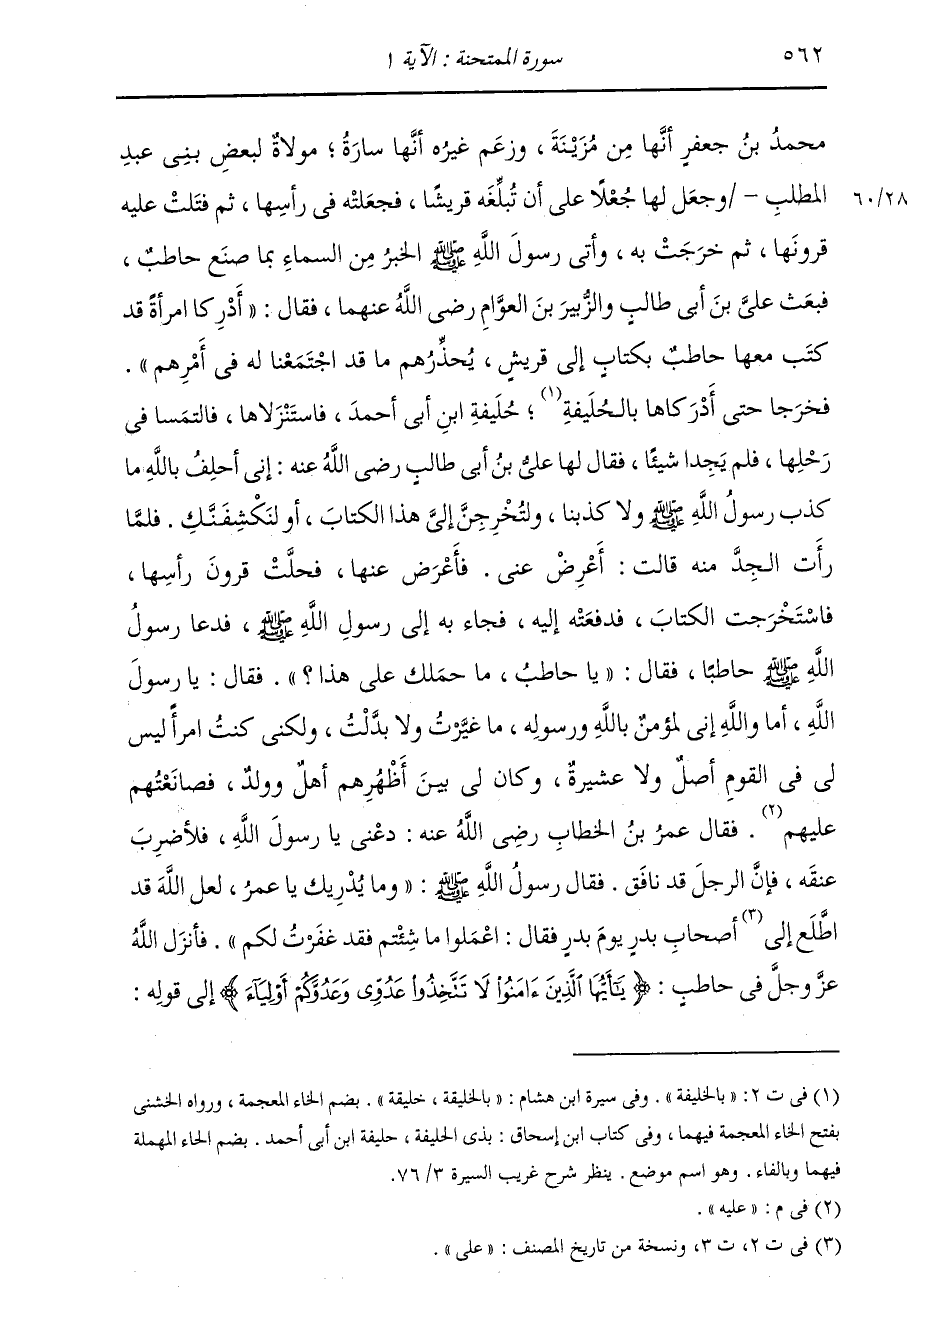 ٥٦٢ سورة الممتحنة : الآية ١
محمدُ بنُ جعفرٍ أنَّها مِن مُزَيْنَةَ ، وزعَم غيرُه أنَّها سارَةُ ؛ مولاةٌ لبعضِ بنى عبدِ
٦٠/٢٨ المطلبِ - /وجعَل لها جُعْلًا على أن تُبلِّغَه قريشًا ، فجعَلتْه فى رأسِها ، ثم فتَلتْ عليه
قرونَها ، ثم خرَجَتْ به ، وأتى رسولَ اللَّهِ ﷺ الخبرُ مِن السماءِ بما صنَع حاطبٌ ،
فبعَث علىَّ بنَ أبى طالبٍ والزُّبيرَ بنَ العوَّامِ رضى اللَّهُ عنهما ، فقال : « أَدْرِكا امرأةً قد
كتَب معها حاطبٌ بكتابٍ إلى قريشٍ ، يُحذِّرُهم ما قد اجْتَمَعْنا له فى أَمْرِهم » .
فخرَجا حتى أَدْرَكاها بالحُلَيفةِ(١) ؛ حُلَيفةِ ابنِ أبى أحمدَ ، فاستَنْزَلاها ، فالتمَسا فى
رَحْلِها ، فلم يَجِدا شيئًا ، فقال لها علىُّ بنُ أبى طالبٍ رضى اللَّهُ عنه : إنى أحلِفُ باللَّهِ ما
كذب رسولُ اللَّهِ ﷺ ولا كذبنا ، ولتُخْرِجِنَّ إلىَّ هذا الكتابَ ، أو لنَكْشِفَنَّكِ . فلمَّا
رأَت الجِدَّ منه قالت : أَعْرِضْ عنى . فأَعْرَض عنها ، فحلَّتْ قرونَ رأسِها ،
فاسْتَخْرَجت الكتابَ ، فدفعَتْه إليه ، فجاء به إلى رسولِ اللَّهِ ﷺ ، فدعا رسولُ
اللَّهِ ﷺ حاطبًا ، فقال : « يا حاطبُ ، ما حمَلك على هذا ؟ » . فقال : يا رسولَ
اللَّهِ ، أما واللَّهِ إنى لمؤمنٌ باللَّهِ ورسولِه ، ما غيَّرْتُ ولا بدَّلْتُ ، ولكنى كنتُ امرأً ليس
لى فى القومِ أصلٌ ولا عشيرةٌ ، وكان لى بينَ أَظْهُرِهم أهلٌ وولدٌ ، فصانَعْتُهم
عليهم(٢) . فقال عمرُ بنُ الخطابِ رضِى اللَّهُ عنه : دعْنى يا رسولَ اللَّهِ ، فلأضرِبَ
عنقَه ، فإنَّ الرجلَ قد نافَق . فقال رسولُ اللَّهِ ﷺ : « وما يُدْرِيك يا عمرُ ، لعل اللَّهَ قد
اطَّلَع إلى(٣) أصحابِ بدرٍ يومَ بدرٍ فقال : اعْمَلوا ما شِئْتم فقد غفَرْتُ لكم » . فأنزَل اللَّهُ
عزَّ وجلَّ فى حاطبٍ : ﴿ يَٰٓأَيُّهَا ٱلَّذِينَ ءَامَنُوا۟ لَا تَتَّخِذُوا۟ عَدُوِّى وَعَدُوَّكُمْ أَوْلِيَآءَ ﴾ إلى قولِه :
(١) فى ت ٢: « بالخليفة » . وفى سيرة ابن هشام : « بالخليقة ، خليقة » . بضم الخاء المعجمة ، ورواه الخشنى
بفتح الخاء المعجمة فيهما ، وفى كتاب ابن إسحاق : بذى الحليفة ، حليفة ابن أبى أحمد . بضم الحاء المهملة
فيهما وبالفاء . وهو اسم موضع . ينظر شرح غريب السيرة ٣/ ٧٦.
(٢) فى م : « عليه » .
(٣) فى ت ٢، ت ٣، ونسخة من تاريخ المصنف : « على » .